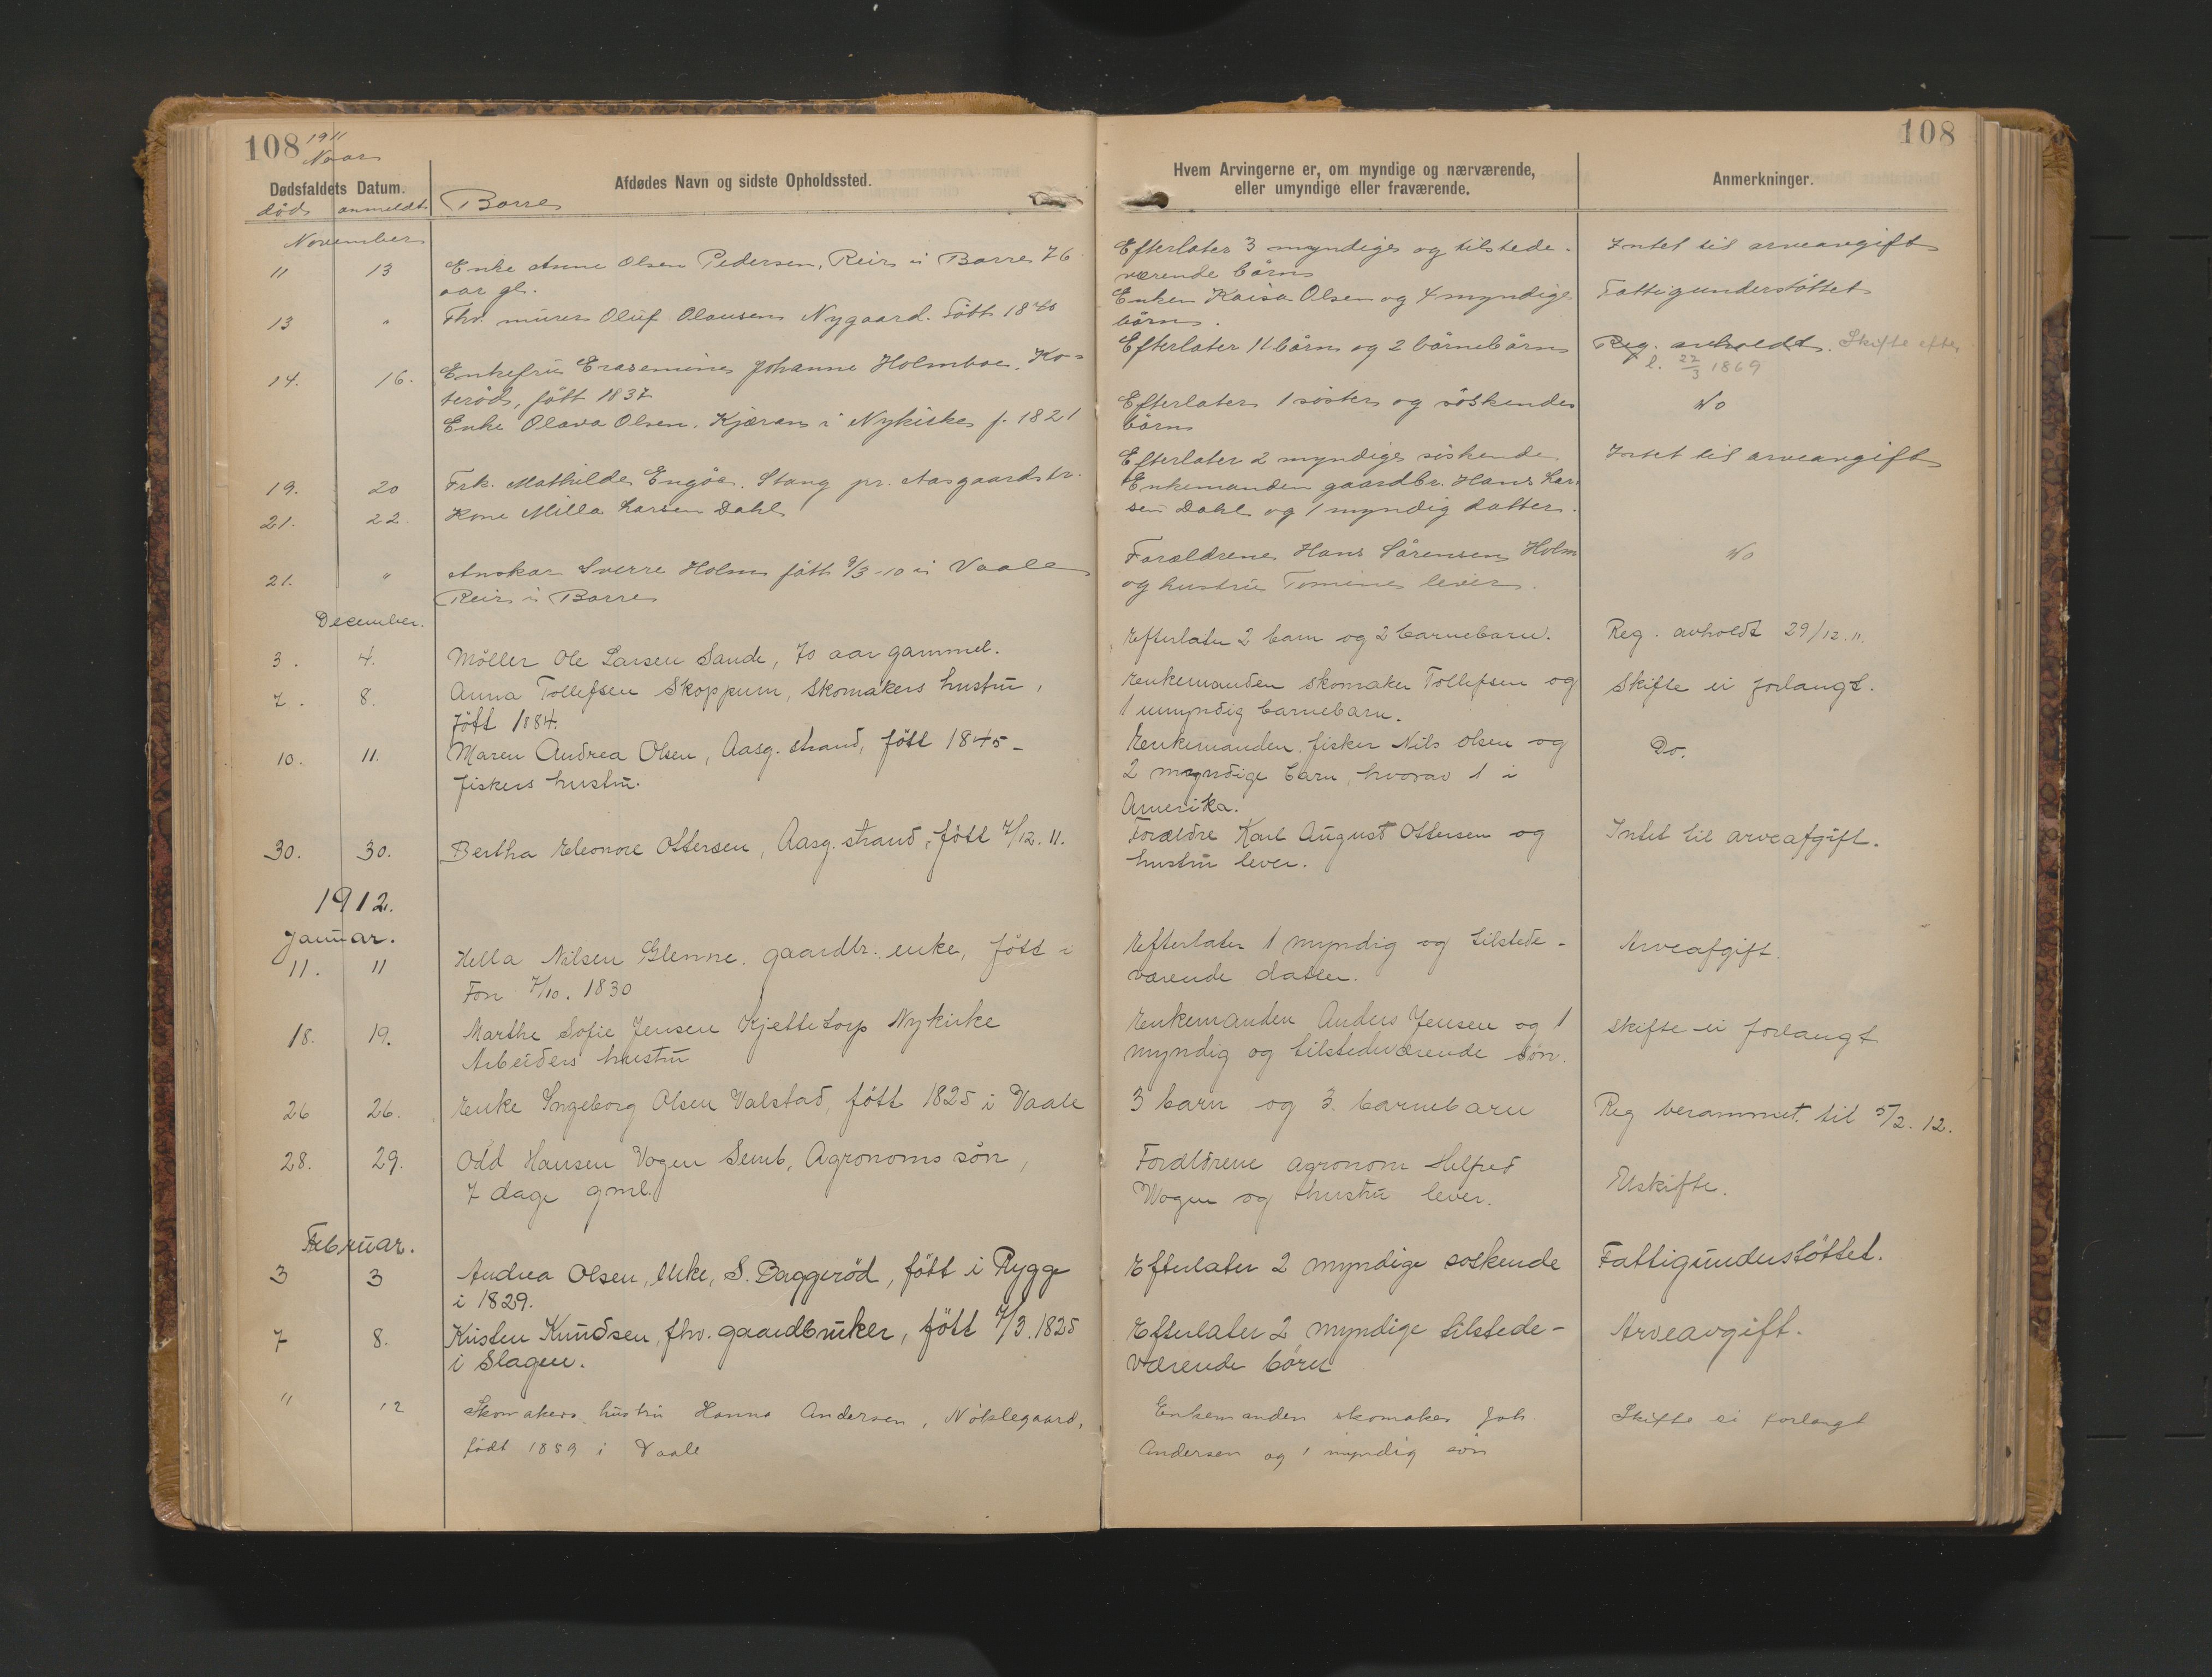 108 1911
Novbr
Dødsfaldets Datum.
Afdødes Navn og sidste Opholdssted.
død anmeldt Borre
November
11 13 Enke Anne Olsen Pedersen, Reir i Borre 76
aar gl.
13 " Fhv. murer Oluf Olausen Nygaard. Født 1840
14. 16. Enkefru Erasemine Johanne Holmboe, Ko=
terød, født 1837
Enke Olava Olsen. Kjæran i Nykirke f. 1821
19. 20 Frk. Mathilde Engøe. Stang pr. Aasgaardstr.
21. 22. Kone Milla Larsen Dahl
21. " Anskar Sverre Holm født 9/3-10 i Vaale
Reir i Borre
December.
3. 4. Møller Ole Larsen Sande, 70 aar gammel.
7. 8. Anna Tollefsen Skoppum, Skomakers hustru,
født 1884.
10. 11. Maren Andrea Olsen, Aasg.strand, født 1845 -
fiskers hustru.
30. 30. Bertha Eleonore Ottersen, Aasg.strand, født 7/12.11.
1912.
Januar.
11. 11 Hella Nilsen Glenne. gaardbr. enke, født i
Fon 7/10. 1830
18. 19. Marthe Sofie Jensen Kjelletorp Nykirke
Arbeiders hustru
26 26. Enke Ingeborg Olsen Valstad, født 1825 i Vaale
28. 29. Odd Hansen Vogen Semb, Agronoms søn,
7 dage gml.
Februar.
3 3 Andrea Olsen, enke, S. Baggerød, født i Rygge
i 1829.
7 8. Kristen Knudsen, fhv. gaardbruker, født 7/3.1825
i Slagen.
" 12 Skomakers hustru Hanna Andersen, Nøklegaard,
født 1859 i Vaale
108
Hvem Arvingerne er, om myndige og nærværende,
eller umyndige eller fraværende.
Anmerkninger.
Efterlater 3 myndige og tilstede- Intet til arveavgift
værende børn
Enken Kaisa Olsen og 4 myndige Fattigunderstøttet
børn.
Efterlater 11 børn og 2 børnebørn Reg. avholdt. Skifte efter
l. 22/3 1869
Efterlater 1 søster og søskende No
børn
Efterlater 2 myndige søskende Intet til arveavgift
Enkemanden gaardbr. Hans Lar-
sen Dahl og 1 myndig datter.
Forældrene Hans Sørensen Holm No
og hustru Tomine lever.
Efterlater 2 barn og 2 barnebarn. Reg. avholdt 29/12.11.
Enkemanden skomaker Tollefsen og Skifte ei forlangt.
1 umyndig barnebarn.
Enkemanden fisker Nils Olsen og Do.
2 myndige barn, hvorav 1 i
Amerika.
Forældre Karl August Ottersen og Intet til arveafgift.
hustru lever.
Efterlater 1 myndig og tilstede- Arveafgift.
værende datter.
Enkemanden Anders Jensen og 1 Skifte ei forlangt
myndig og tilstedeværende søn.
3 barn og 3. barnebarn Reg berammet til 5/2. 12.
Forældrene agronom Helfred Uskifte.
Wogen og hustru lever.
Efterlater 2 myndige søskende Fattigunderstøttet.
Efterlater 2 myndige tilstede- Arveavgift.
værende børn
Enkemanden skomaker Joh. Skifte ei forlangt
Andersen og 1 myndig søn